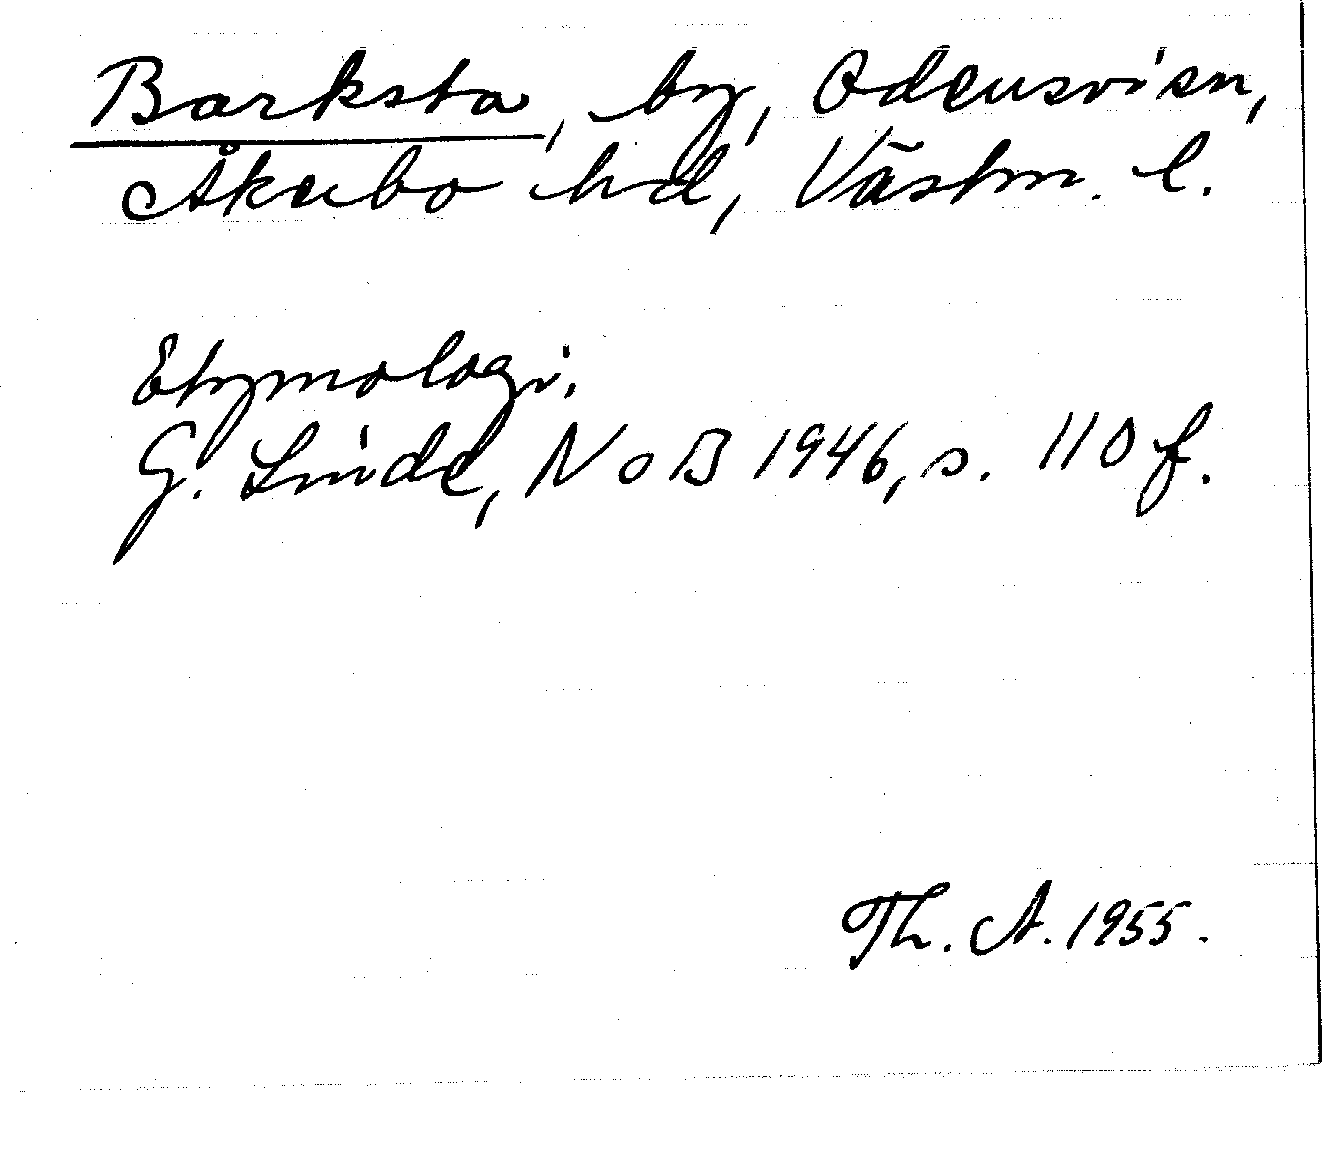 Barksta, by, Odensvi sn,
Åkerbo hd, Västm. l.
Etymologi.
G. Linde, NoB 1946, s. 110 f.
Th. A. 1955.